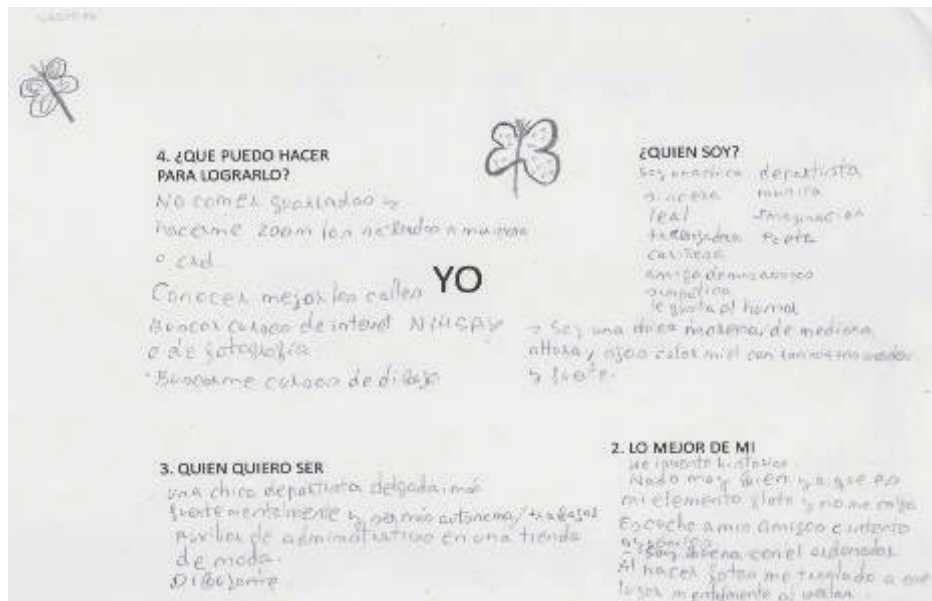 4. ¿QUE PUEDO HACER
PARA LOGRARLO?
No comer guarradas y
hacerme zoom los a
o cad
Conocer mejor las calles
Buscar cursos de internet
o de fotografía
Buscarme cursos de dibujo
YO
¿QUIEN SOY?
Soy una chica deportista
sincera
leal Imaginación
trabajadora
cariñosa
amiga de mis amigos
simpática
le gusta el humor
Soy una chica morena, de mediana
altura, ojos color miel con
y fuerte.
3. QUIEN QUIERO SER
una chica deportista delgada, más
fuerte mentalmente y ser más autonoma/trabajar
Auxiliar de administrativo en una tienda
de moda.
Dibujante
2. LO MEJOR DE MI
Me invento historias
Nado muy bien ya que es
mi elemento floto y no me caigo
Escucho a mis amigos e intento
Soy buena con el ordenador
Al hacer fotos me traslado a ese
lugar mentalmente